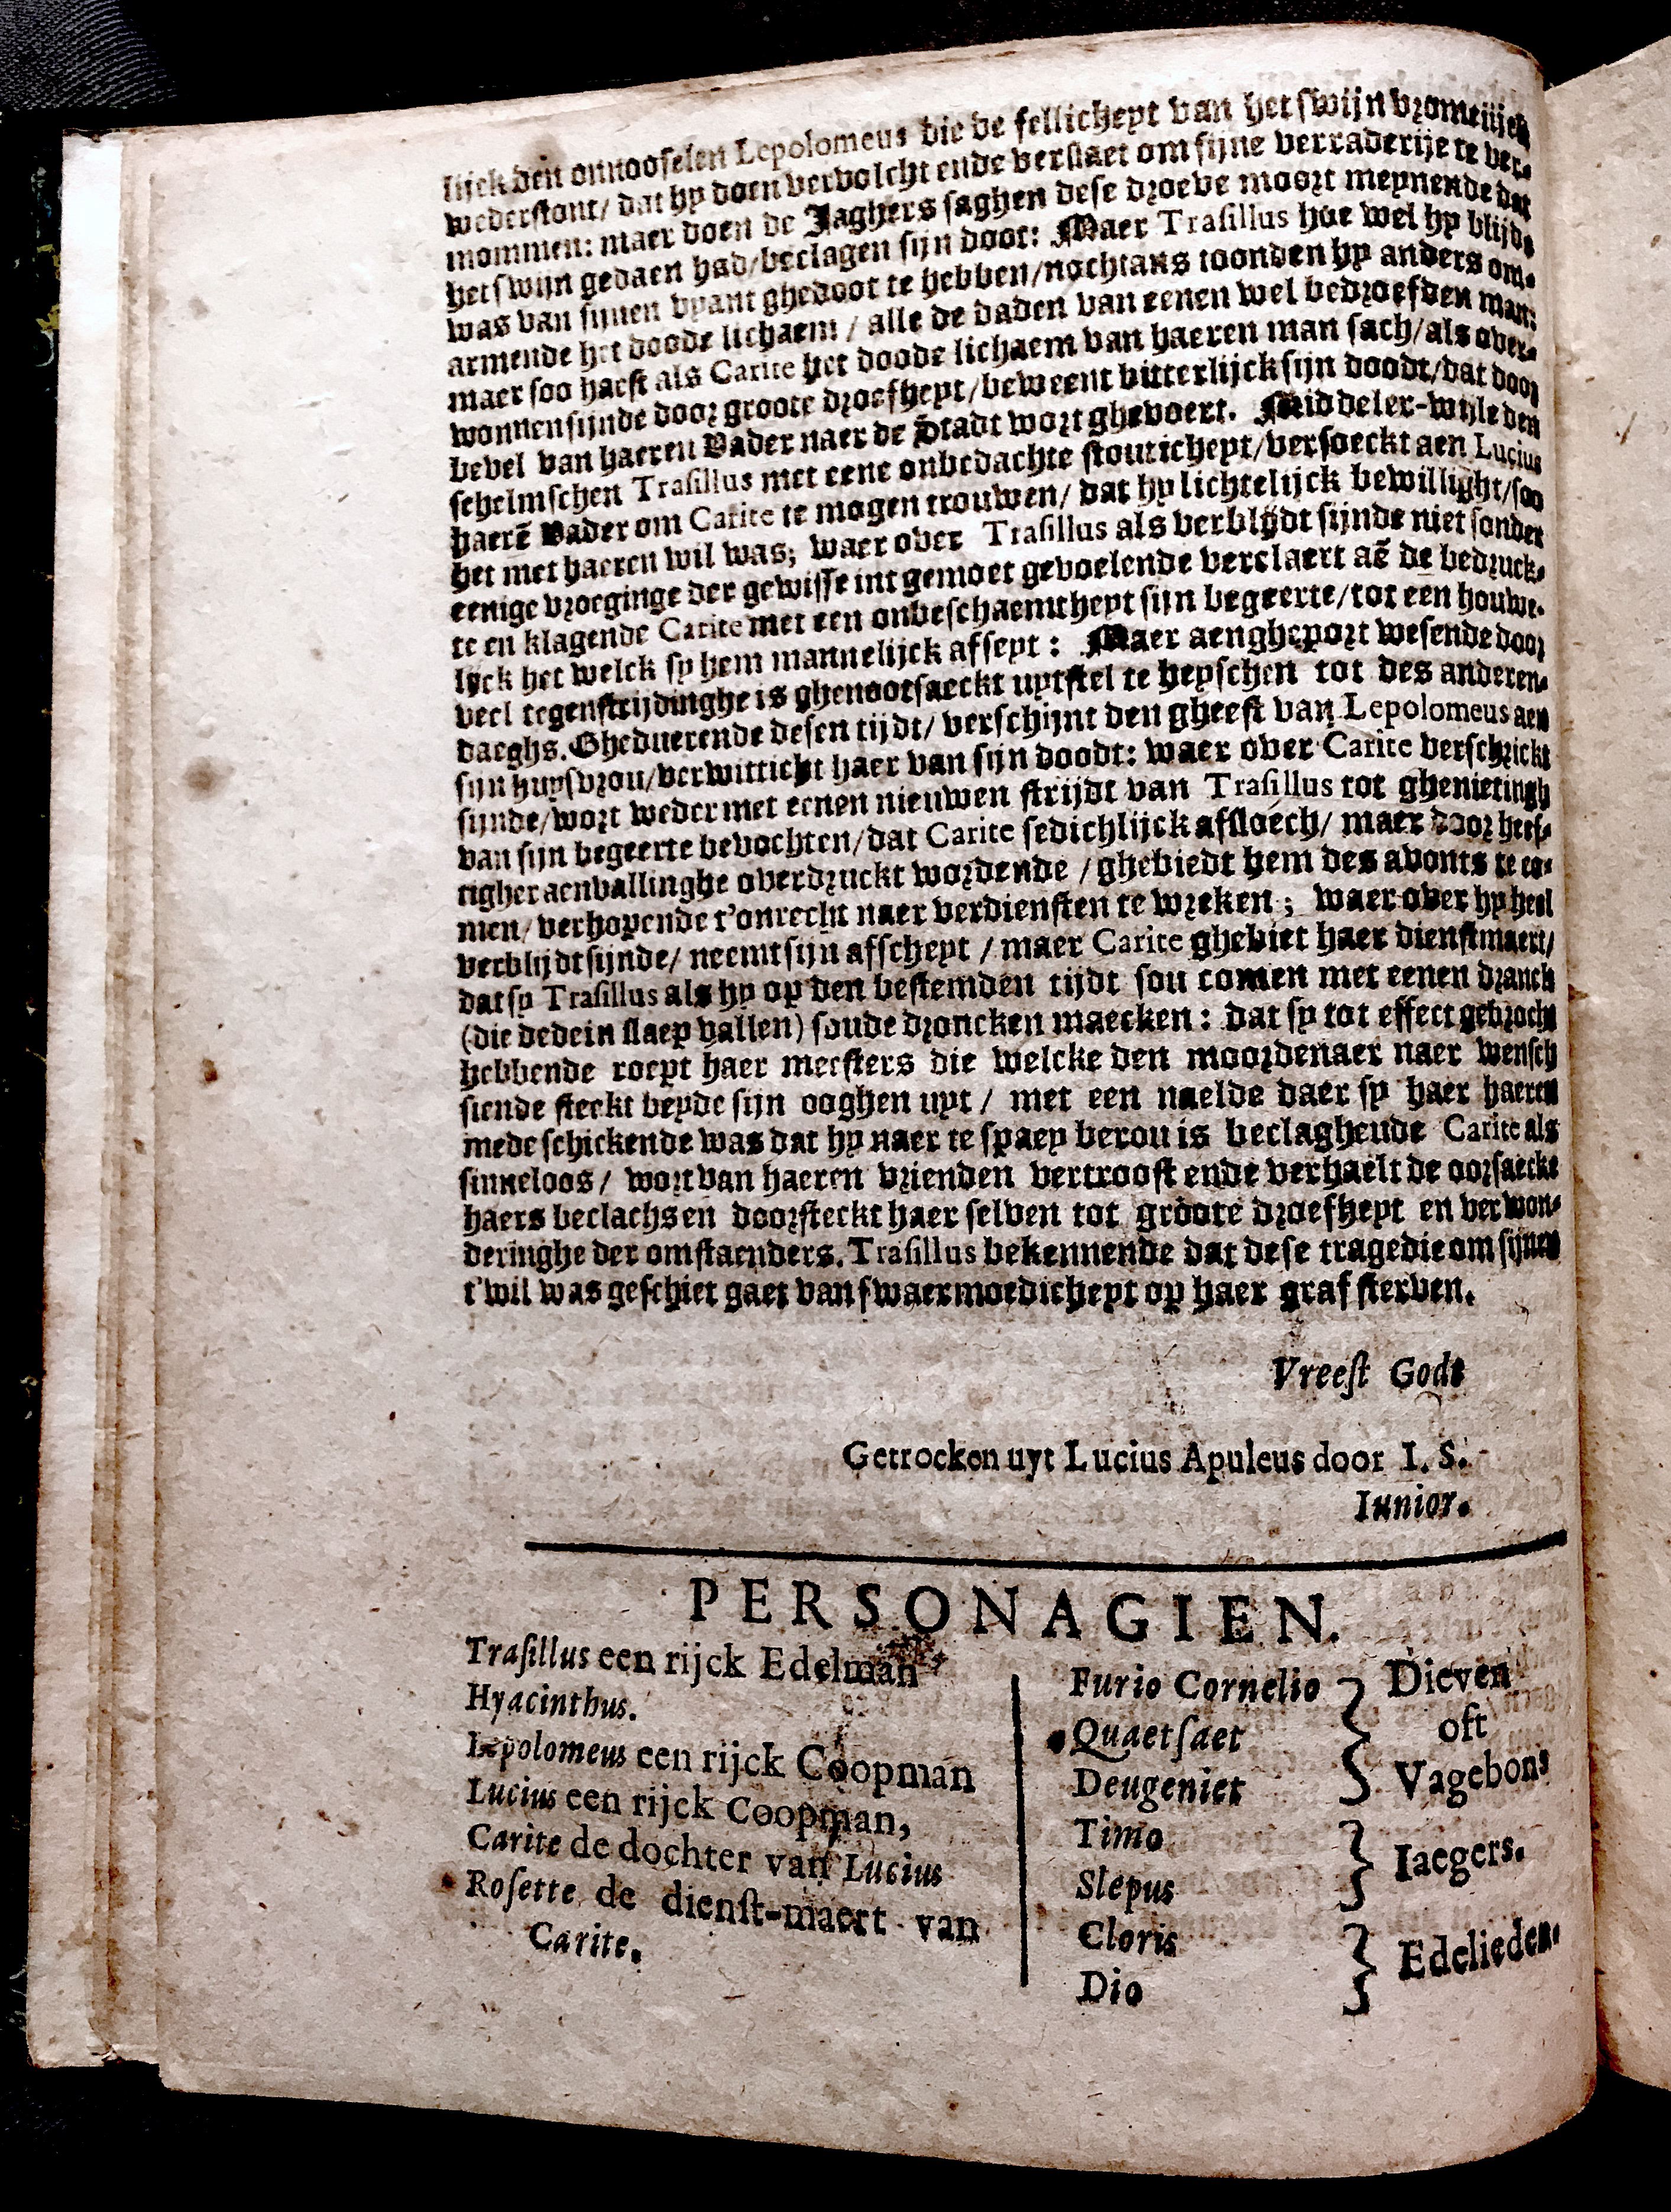 lijck den onnooselen Lepolomeus die de fellicheyt van het swijn vromelijck
wederstont/ dat hy doen vervolcht ende verslaet om sijne verraderije te ver-
mommen: maer doen de Jaghers saghen dese droeve moort meynende dat
het swijn gedaen had/beclagen sijn doot: Maer Trasillus hoe wel hy blijde
was van sijnen vyant ghedoot te hebben/nochtans toonden hy anders om-
armende het doode lichaem / alle de daden van eenen wel bedroefden man:
maer soo haest als Carite het doode lichaem van haeren man sach/als over-
wonnen sijnde door groote droefheyt/beweent bitterlijck sijn doodt/dat door
bevel van haeren Vader naer de Stadt wort ghevoert. Middeler-wijle den
schelmschen Trasillus met eene onbedachte stouticheyt/versoeckt aen Lucius
haerē Vader om Carite te mogen trouwen/ dat hy lichtelijck bewillight/soo
het met haeren wil was; waer over Trasillus als verblijdt sijnde niet sonder
eenige vroeginge der gewisse int gemoet gevoelende verclaert aē de bedruck-
te en klagende Carite met een onbeschaemtheyt sijn begeerte/tot een houwe-
lijck het welck sy hem mannelijck afseyt : Maer aengheport wesende door
veel tegenstrijdinghe is ghenootsaeckt uytstel te heyschen tot des anderen-
daeghs. Gheduerende desen tijdt/ verschijnt den gheest van Lepolomeus aen
sijn huysvrou/verwitticht haer van sijn doodt: waer over Carite verschrickt
sijnde/wort weder met eenen nieuwen strijdt van Trasillus tot ghenietingh
van sijn begeerte bevochten/dat Carite sedichlijck afsloech/ maer door heef-
tigher aenvallinghe overdruckt wordende / ghebiedt hem des avonts te co-
men/ verhopende t'onrecht naer verdiensten te wreken ; waer over hy heel
verblijdt sijnde/ neemt sijn afscheyt / maer Carite ghebiet haer dienstmaert/
dat sy Trasillus als hy op den bestemden tijdt sou comen met eenen dranck
(die dede in slaep vallen) soude droncken maecken : dat sy tot effect gebrocht
hebbende roept haer meesters die welcke den moordenaer naer wensch
siende steckt beyde sijn ooghen uyt / met een naelde daer sy haer haeren
mede schickende was dat hy naer te spaey berou is beclaghende Carite als
sinneloos / wort van haeren vrienden vertroost ende verhaelt de oorsaecke
haers beclachs en doorsteckt haer selven tot groote droefheyt en verwon-
deringhe der omstaenders. Trasillus bekennende dat dese tragedie om sijnen
t'wil was geschiet gaet van swaermoedicheyt op haer graf sterven.
Vreest Godt
Getrocken uyt Lucius Apuleus door I. S.
Iunior.
PERSONAGIEN.
Trasillus een rijck Edelman
Hyacinthus.
Lepolomeus een rijck Coopman
Lucius een rijck Coopman,
Carite de dochter van Lucius
Rosette de dienst-maert van
Carite.
Furio Cornelio
Quaetsaet
Deugeniet
Dieven
oft
Vagebons
Timo
Slepus
Iaegers.
Cloris
Dio
Edelieden.